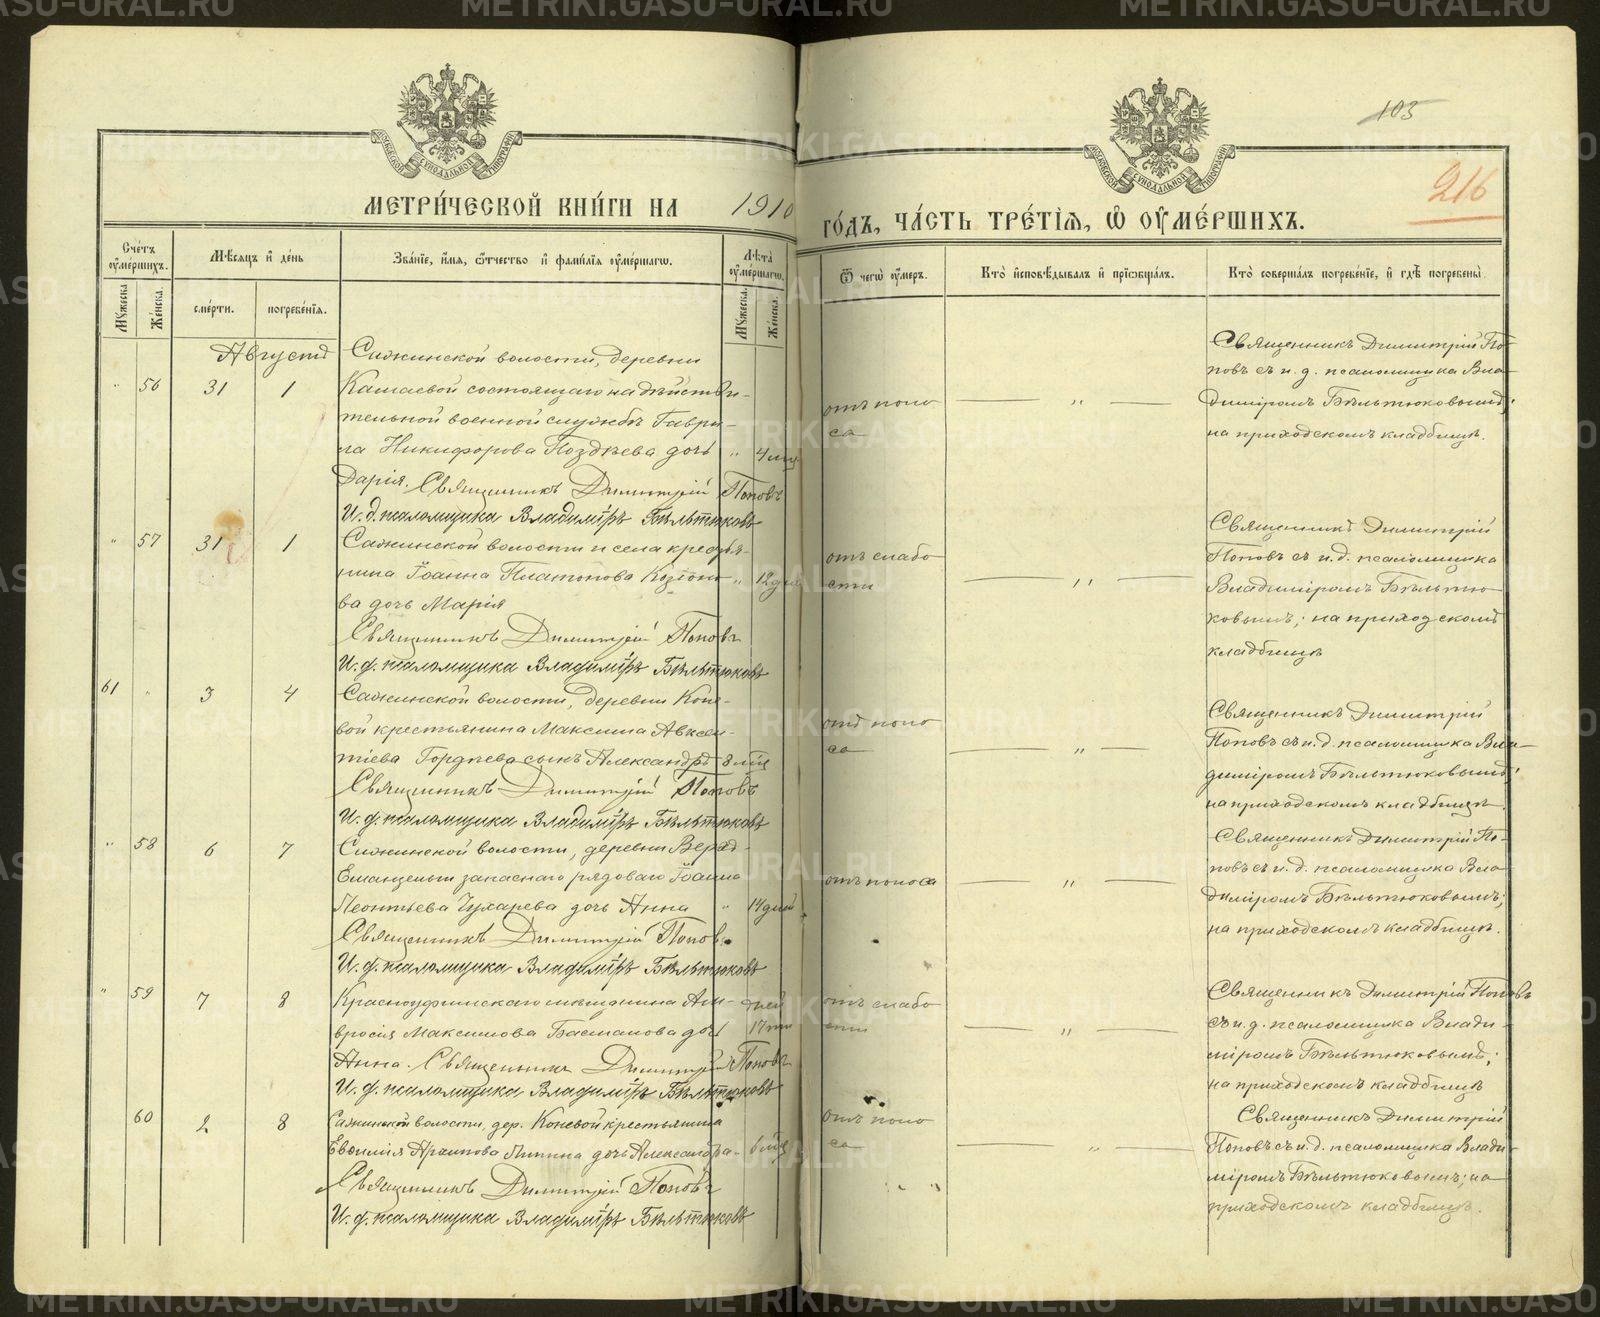 METRIKI.GASU-URAL.RU
103
216
МЕТРИ́ЧЕСКОЙ КНИ́ГИ НА 1910
ГО́ДЪ, ЧА́СТЬ ТРЕ́ТІѦ, Ѡ҆ ОУ҆МЕ́РШИХЪ.
Сче́тъ оу҆ме́ршихъ.
Мѣ́сѧцъ и҆ де́нь
Зва́нїе, и҆́мѧ, ѻ҆́тчество и҆ фами́лїѧ оу҆ме́ршагѡ.
Лѣ́та оу҆ме́ршагѡ.
Ѿ чегѡ̀ оу҆́меръ.
Кто̀ и҆сповѣ́дывалъ и҆ прїѡбща́лъ.
Кто̀ соверша́лъ погребе́нїе, и҆ гдѣ̀ погребены̀
Мꙋ́жеска.
Же́нска.
сме́рти.
погребе́нїѧ.
Мꙋ́жеска.
Же́нска.
Августъ
Сажинской волости, деревни
" 56 31 1 Камаевой состоящаго на дѣйстви-
тельной военной службѣ Гаври-
ла Никифорова Поздѣева дочь " 4 мц
Дарія. Священникъ Димитрій Поповъ
И. д. псаломщика Владиміръ Бѣльтюковъ
отъ поно
са
— " —
Священникъ Димитрій По-
повъ съ и. д. псаломщика Вла-
диміромъ Бѣльтюковымъ;
на приходскомъ кладбищѣ.
" 57 31 1 Сажинской волости и села крестья-
нина Іоанна Платонова
ва дочь Марія " 12 дн
Священникъ Димитрій Поповъ
И. д. псаломщика Владиміръ Бѣльтюковъ
отъ слабо
сти
— " —
Священникъ Димитрій
Поповъ съ и. д. псаломщика
Владиміромъ Бѣльтю-
ковымъ; на приходскомъ
кладбищѣ
61 " 3 4 Сажинской волости, деревни Коне-
вой крестьянина Максима Авксен-
тіева Гордѣева сынъ Александръ 8 мц
Священникъ Димитрій Поповъ
И. д. псаломщика Владиміръ Бѣльтюковъ
отъ поно
са
— " —
Священникъ Димитрій
Поповъ съ и. д. псаломщика Вла-
диміромъ Бѣльтюковымъ;
на приходскомъ кладбищѣ.
" 58 6 7 Сажинской волости, деревни Верхъ-
запаснаго рядоваго Іоанна
Леонтьева Чухарева дочь Анна " 14 дней
Священникъ Димитрій Поповъ
И. д. псаломщика Владиміръ Бѣльтюковъ
отъ поноса
— " —
Священникъ Димитрій По-
повъ съ и. д. псаломщика Вла-
диміромъ Бѣльтюковымъ;
на приходскомъ кладбищѣ.
" 59 7 8 Красноуфимскаго мѣщанина Ам-
вросія Максимова Басманова дочь
Анна. Священникъ Димитрій Поповъ
И. д. псаломщика Владиміръ Бѣльтюковъ
отъ слабо
сти
— " —
Священникъ Димитрій Поповъ
съ и. д. псаломщика Влади-
міромъ Бѣльтюковымъ;
на приходскомъ кладбищѣ
60 2 8 Сажинской волости, дер. Коневой крестьянина
дочь Александра- 6 мц
Священникъ Димитрій Поповъ
И. д. псаломщика Владиміръ Бѣльтюковъ
отъ поно
са
— " —
Священникъ Димитрій
Поповъ съ и. д. псаломщика Влади-
міромъ Бѣльтюковымъ; на
приходскомъ кладбищѣ.